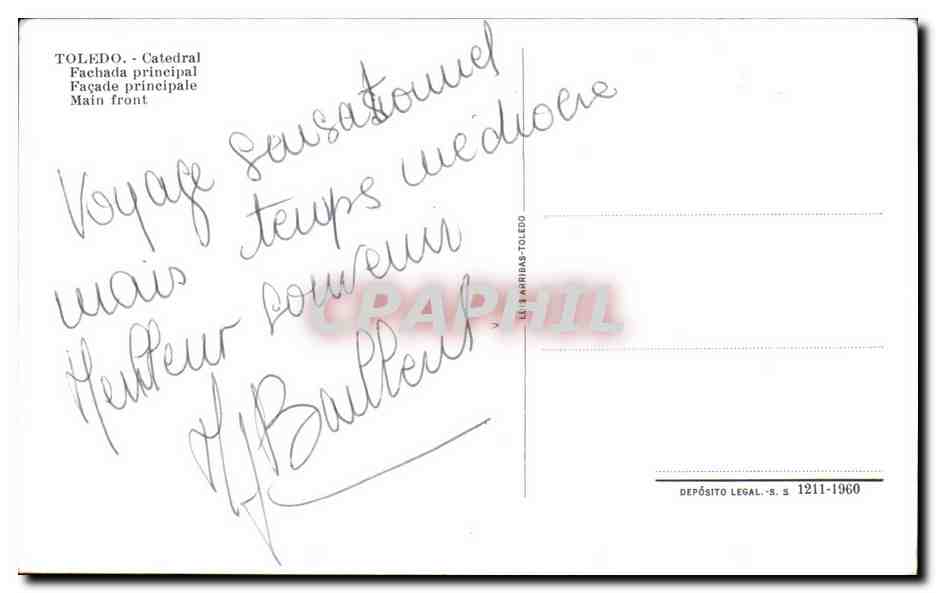 TOLEDO. - Catedral
Fachada principal
Façade principale
Main front
Voyage sensationnel
mais temps médiocre
Meilleur souvenir
LUIS ARRIBAS-TOLEDO
CPAPHIL
DEPÓSITO LEGAL.-S. S. 1211-1960